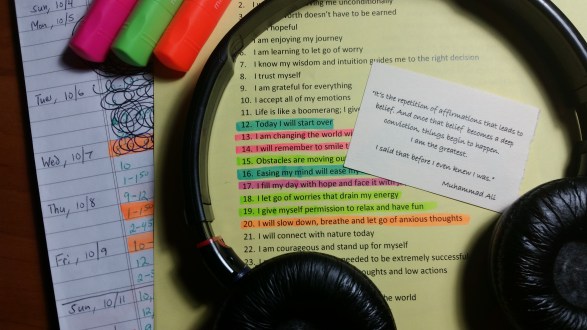 Sun, 10/4
Mon, 10/5
Tue, 10/6
Wed, 10/7
Thu, 10/8
Fri, 10/9
Sun, 10/11
10
1-1
9-12
1-1
2-4
10-
12
2-
10,
12
9
2.
me unconditionally
worth doesn't have to be earned
hopeful
I am enjoying my journey
6. I am learning to let go of worry
7. I know my wisdom and intuition guides me to the right decision
8. I trust myself
9. I am grateful for everything
10. I accept all of my emotions
11. Life is like a boomerang; I give
12. Today I will start over
13. I am changing the world wi
14. I will remember to smile
15. Obstacles are moving ou
16. Easing my mind will ease my
17. I fill my day with hope and face it with
18. I let go of worries that drain my energy
19. I give myself permission to relax and have fun
20. I will slow down, breathe and let go of anxious thoughts
21. I will connect with nature today
22. I am courageous and stand up for myself
23.
needed to be extremely successful
oughts and low actions
the world
"It's the repetition of affirmations that leads to
belief. And once that belief becomes a deep
conviction, things begin to happen.
I am the greatest.
I said that before I even knew I was."
Muhammad Ali